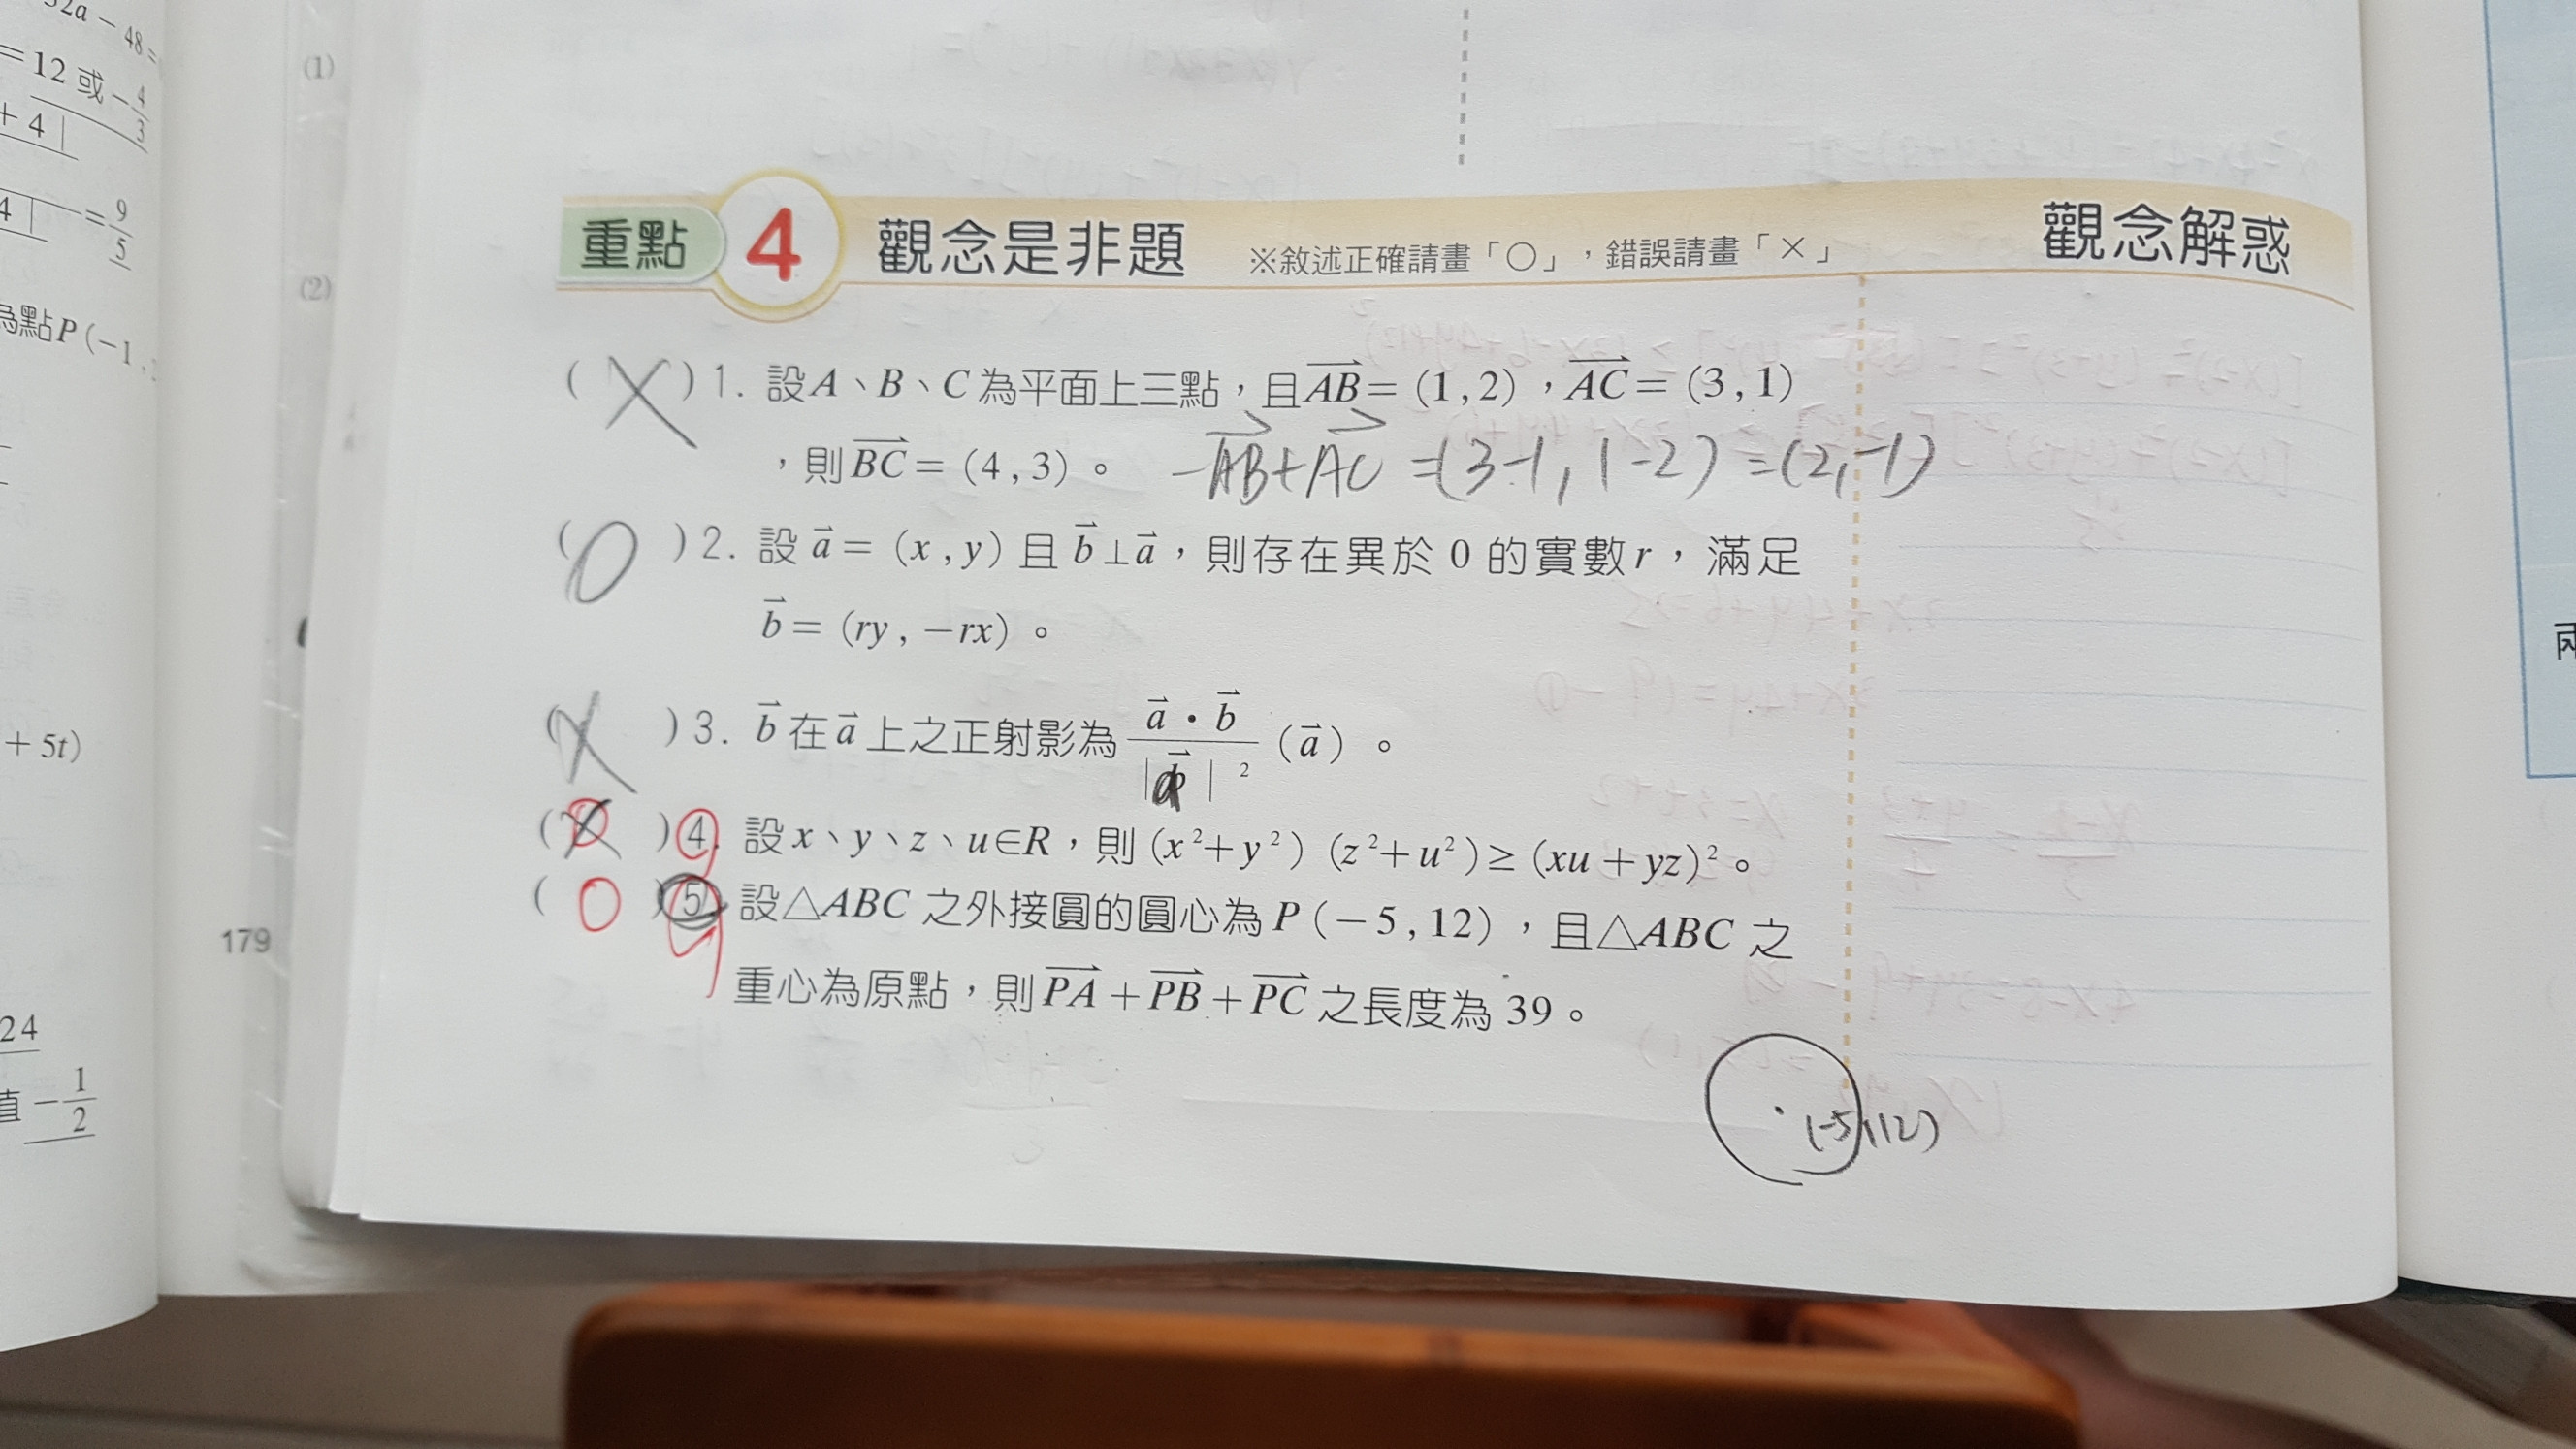 32a − 48 =
= 12 或 −4/3
+ 4 |
4 | = 9/5
為點P (−1 ,
+ 5t)
24
值 −1/2
(1)
(2)
179
重點 4 觀念是非題 ※敘述正確請畫「○」,錯誤請畫「×」 觀念解惑
( X ) 1. 設A、B、C為平面上三點,且AB = (1 , 2) ,AC = (3 , 1)
,則BC = (4 , 3) 。 −AB+AC =(3-1, 1-2) =(2,-1)
( O ) 2. 設 a = (x , y) 且 b⊥a,則存在異於 0 的實數r,滿足
b = (ry , −rx) 。
( X ) 3. b 在 a 上之正射影為 a · b / | a |² (a) 。
( O ) 4. 設 x、y、z、u∈R,則 (x²+ y²) (z²+ u²) ≥ (xu + yz)² 。
( O ) 5. 設△ABC 之外接圓的圓心為 P (−5 , 12) ,且△ABC 之
重心為原點,則 PA + PB + PC 之長度為 39。
(-5,12)